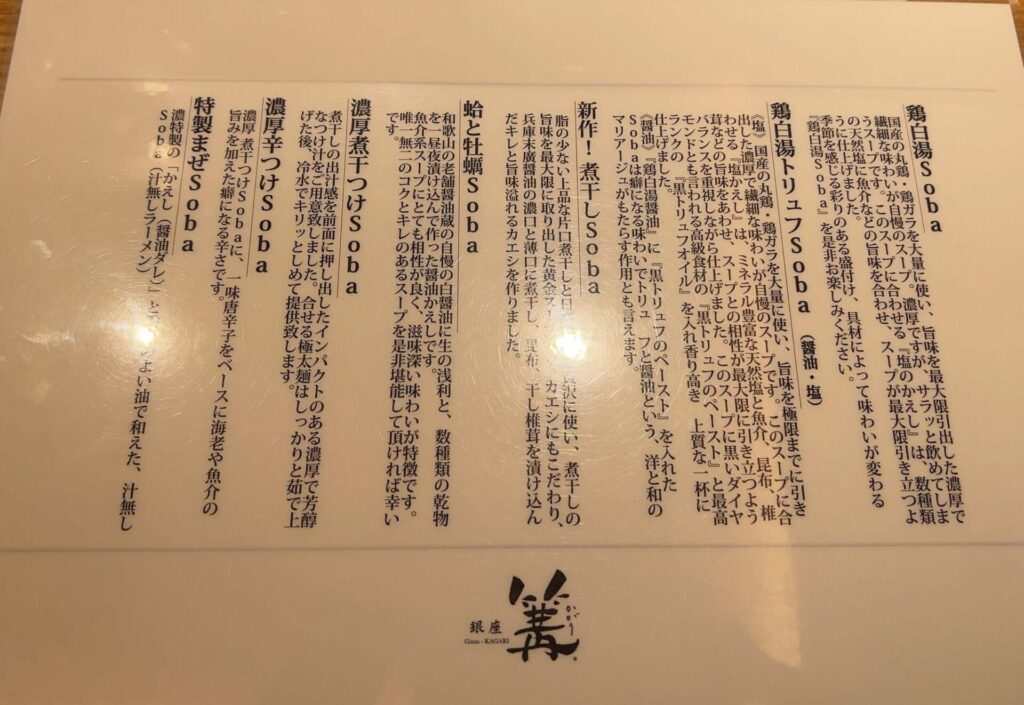 鶏白湯Soba
国産の丸鶏・鶏ガラを大量に使い、旨味を最大限引出した濃厚で
繊細な味わいが自慢のスープ。濃厚ですが、サラッと飲めてしま
うスープです。このスープに合わせる『塩のかえし』は、数種類
の天然塩に魚介などの旨味を合わせ、スープが最大限引き立つよ
うに仕上げました。
季節を感じる彩りのある盛付け、具材によって味わいが変わる
『鶏白湯Soba』を是非お楽しみください。
鶏白湯トリュフSoba（醤油・塩）
《塩》国産の丸鶏・鶏ガラを大量に使い、旨味を極限までに引き
出した濃厚で繊細な味わいが自慢のスープです。このスープに合
わせる『塩かえし』は、ミネラル豊富な天然塩と魚介、昆布、椎
茸などの旨味をあわせ、スープとの相性が最大限に引き立つよう
バランスを重視しながら仕上げました。このスープに黒いダイヤ
モンドとも言われる高級食材の『黒トリュフのペースト』と最高
ランクの『黒トリュフオイル』を入れ香り高き、上質な一杯に
仕上げました。
《醤油》『鶏白湯醤油』に『黒トリュフのペースト』を入れた
Sobaは癖になる味わいでトリュフと醤油という、洋と和の
マリアージュがもたらす作用とも言えます。
新作！煮干しSoba
脂の少ない上品な片口煮干しと 沢に使い、煮干しの
旨味を最大限に取り出した黄金ス カエシにもこだわり、
兵庫末廣醤油の濃口と薄口に煮干し、昆布、干し椎茸を漬け込ん
だキレと旨味溢れるカエシを作りました。
蛤と牡蠣Soba
和歌山の老舗醤油蔵の自慢の白醤油に生の浅利と、数種類の乾物
を一昼夜漬け込んで作った醤油かえしです。
魚介系スープにとても相性が良く、滋味深い味わいが特徴です。
唯一無二のコクとキレのあるスープを是非堪能して頂ければ幸い
です。
濃厚煮干つけSoba
煮干しの出汁感を前面に押し出したインパクトのある濃厚で芳醇
なつけ汁をご用意致しました。合せる極太麺はしっかりと茹で上
げた後、冷水でキリッとしめて提供致します。
濃厚辛つけSoba
濃厚煮干つけSobaに、一味唐辛子をベースに海老や魚介の
旨みを加えた癖になる辛さです。
特製まぜSoba
濃特製の「かえし（醤油ダレ）」と よい油で和えた、汁無し
Soba（汁無しラーメン）
篝
かがり
銀座
Ginza - KAGARI